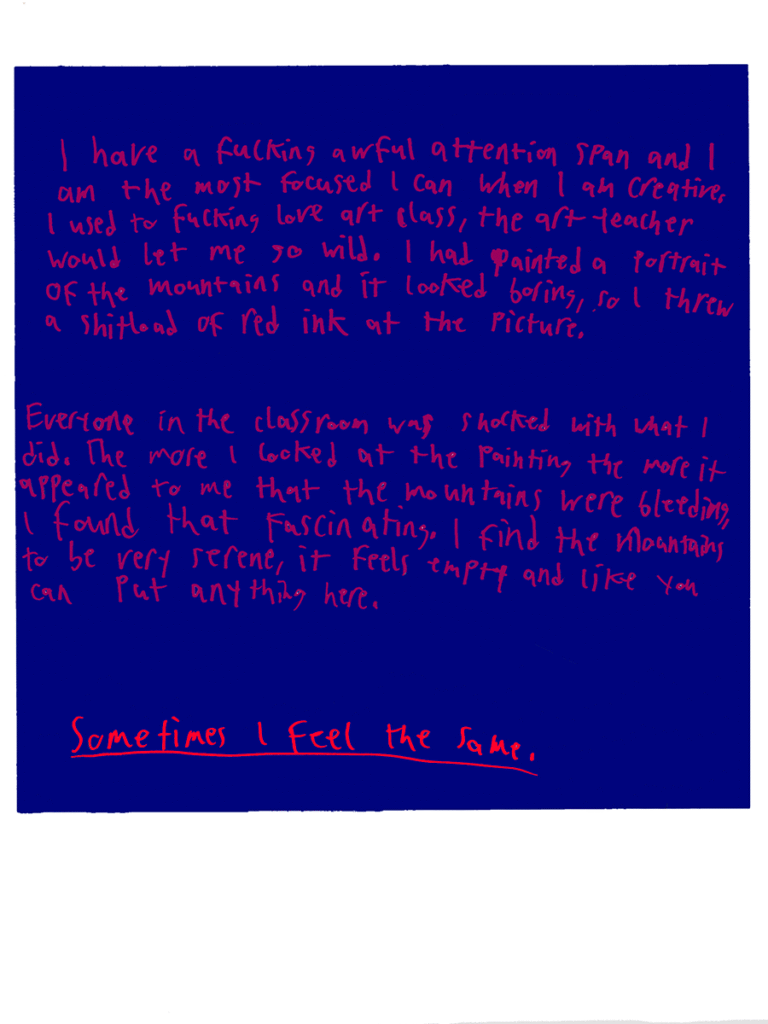 I have a fucking awful attention span and I
am the most focused I can when I am creative.
I used to fucking love art class, the art teacher
would let me go wild. I had painted a portrait
of the mountains and it looked boring, so I threw
a shitload of red ink at the picture.
Everyone in the classroom was shocked with what I
did. The more I looked at the painting the more it
appeared to me that the mountains were bleeding,
I found that fascinating. I find the mountains
to be very serene, it feels empty and like you
can put anything here.
Sometimes I feel the same.